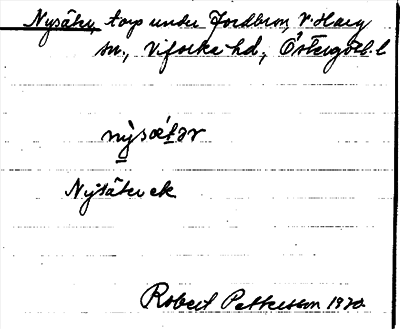 Nysäter, torp under Jordbron, V. Harg
sn., Vifolka hd, Östergötl. l
nỳsæ´tər
Nysäter ek.
Robert Pettersson 1920.